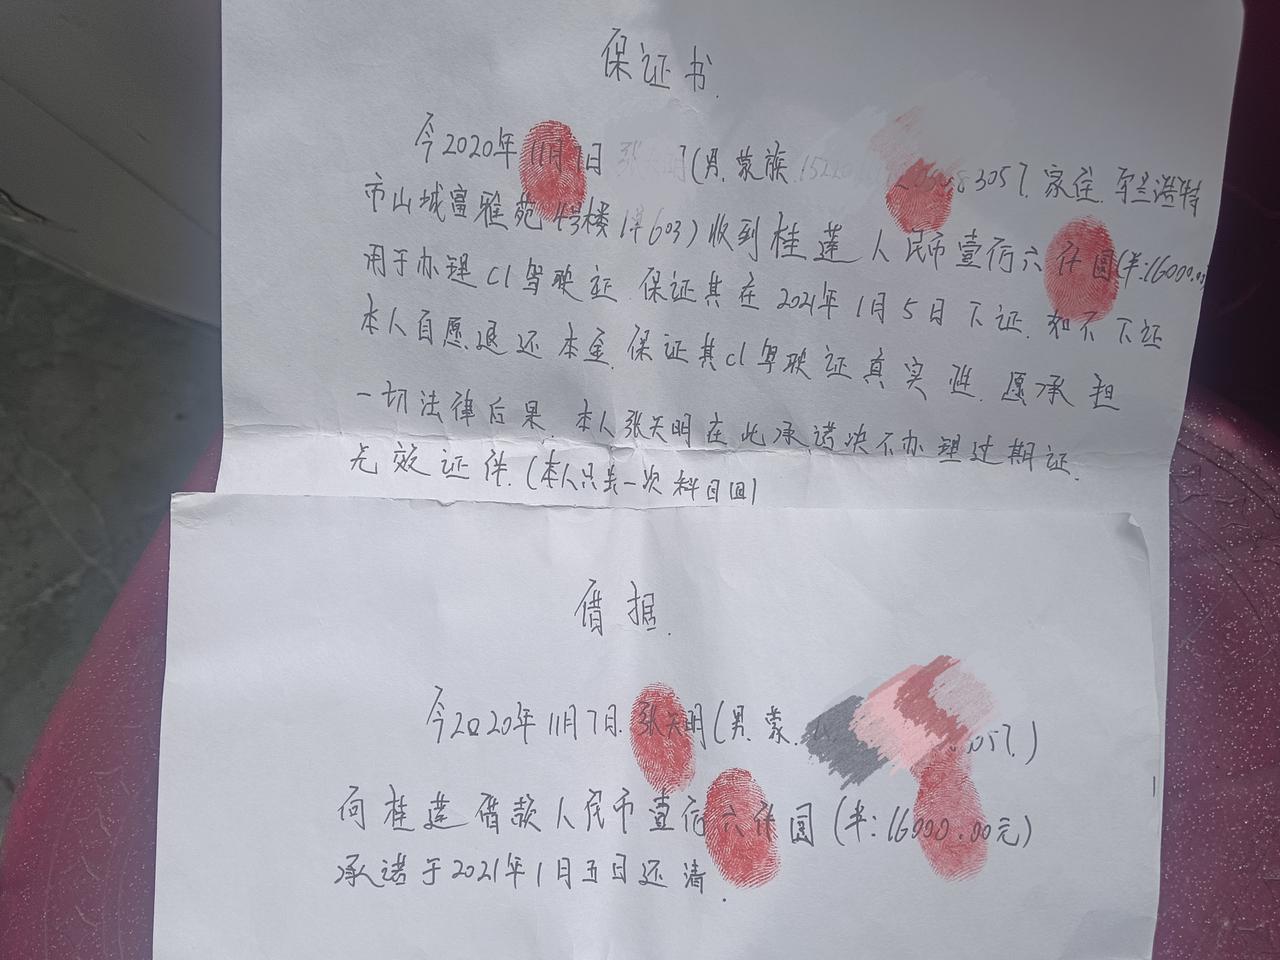 保证书.
今2020年11月7日 张天明(男.蒙族.15220 3057.家住.乌兰浩特
市山城富雅苑4号楼1单603)收到桂莲人民币壹万六仟圆(￥:16000.00
用于办理C1驾驶证.保证其在2021年1月5日下证.如不下证
本人自愿退还本金.保证其C1驾驶证真实性.愿承担
一切法律后果.本人张天明在此承诺决不办理过期证.
无效证件.(本人只考一次科目四)
借据.
今2020年11月7日.张天明(男.蒙. 057.)
向桂莲借款人民币壹万六仟圆(￥:16000.00元)
承诺于2021年1月五日还清.